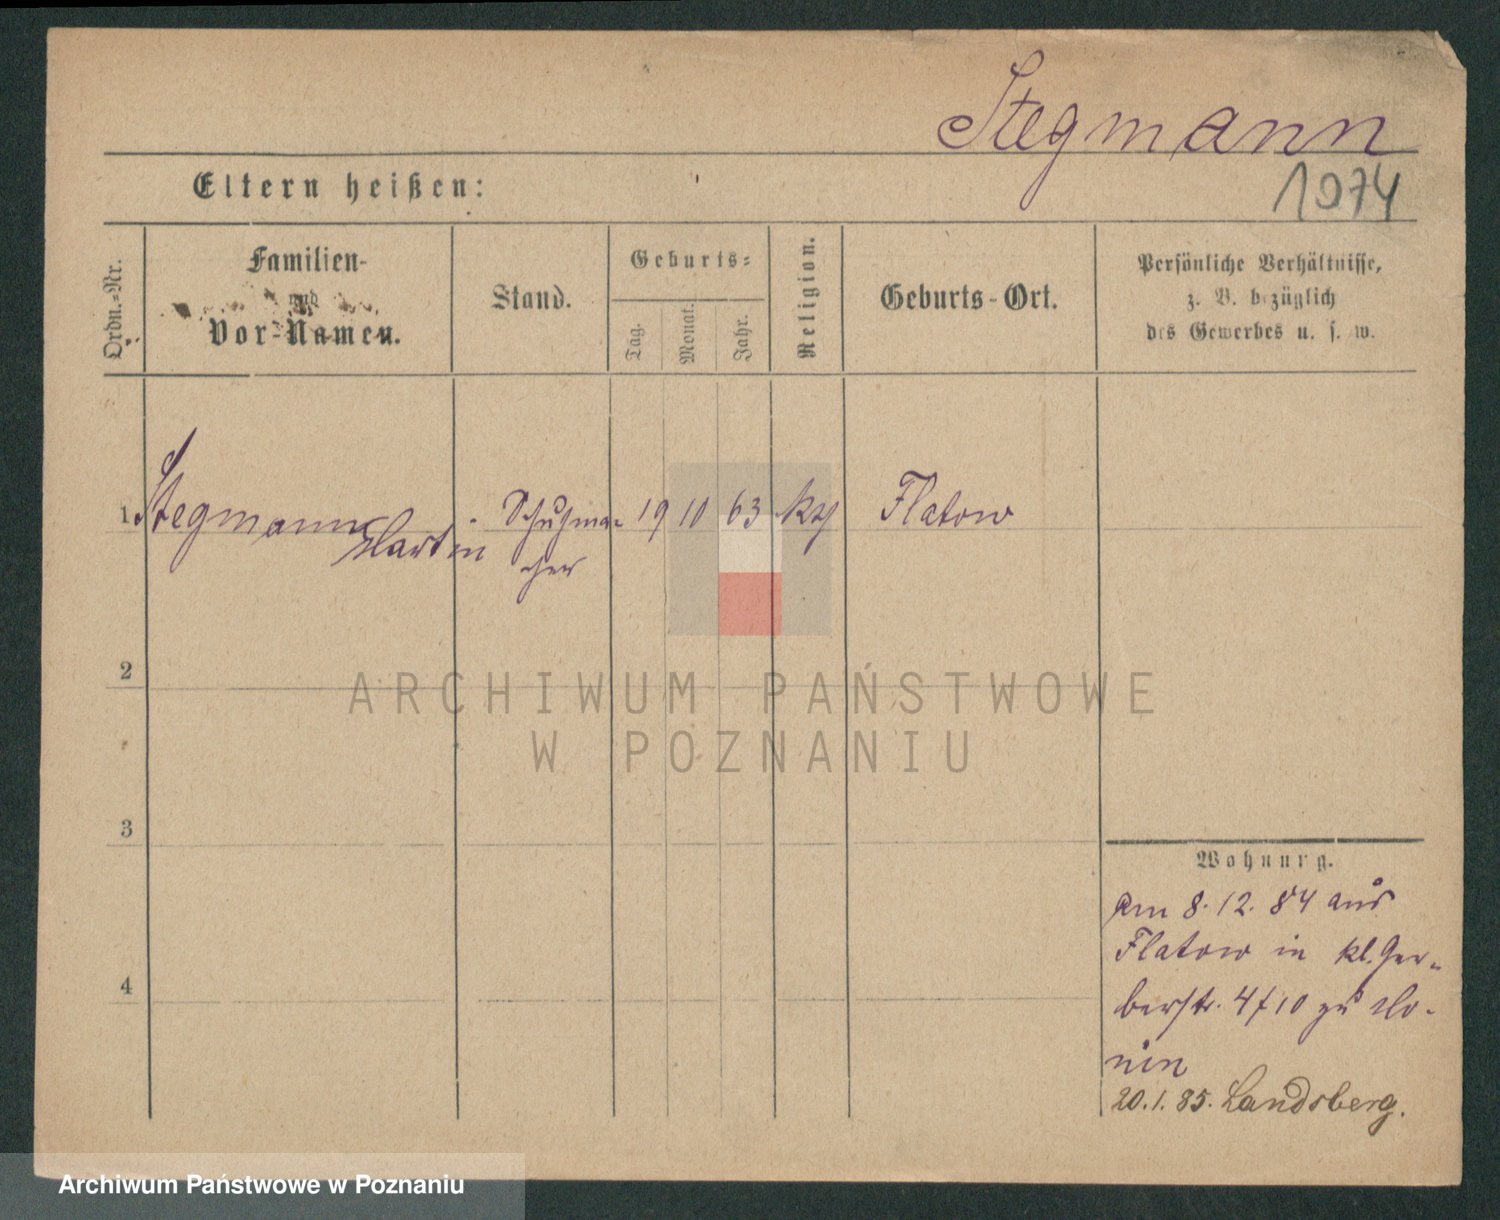 Stegmann
Eltern heißen:
1974
Ordn.-Nr.
Familien-
und
Vor-Namen.
Stand.
Geburts-
Tag.
Monat.
Jahr.
Religion.
Geburts-Ort.
Persönliche Verhältnisse,
z. B. bezüglich
des Gewerbes u. s. w.
1 Stegmann Martin Schuhma-cher 19 10 63 Flatow
2
ARCHIWUM PAŃSTWOWE
W POZNANIU
3
Wohnung.
am 8. 12. 84 aus
Flatow in kl. Ger-
berstr. 4/10 zu
20. 1. 85. Landsberg.
4
Archiwum Państwowe w Poznaniu